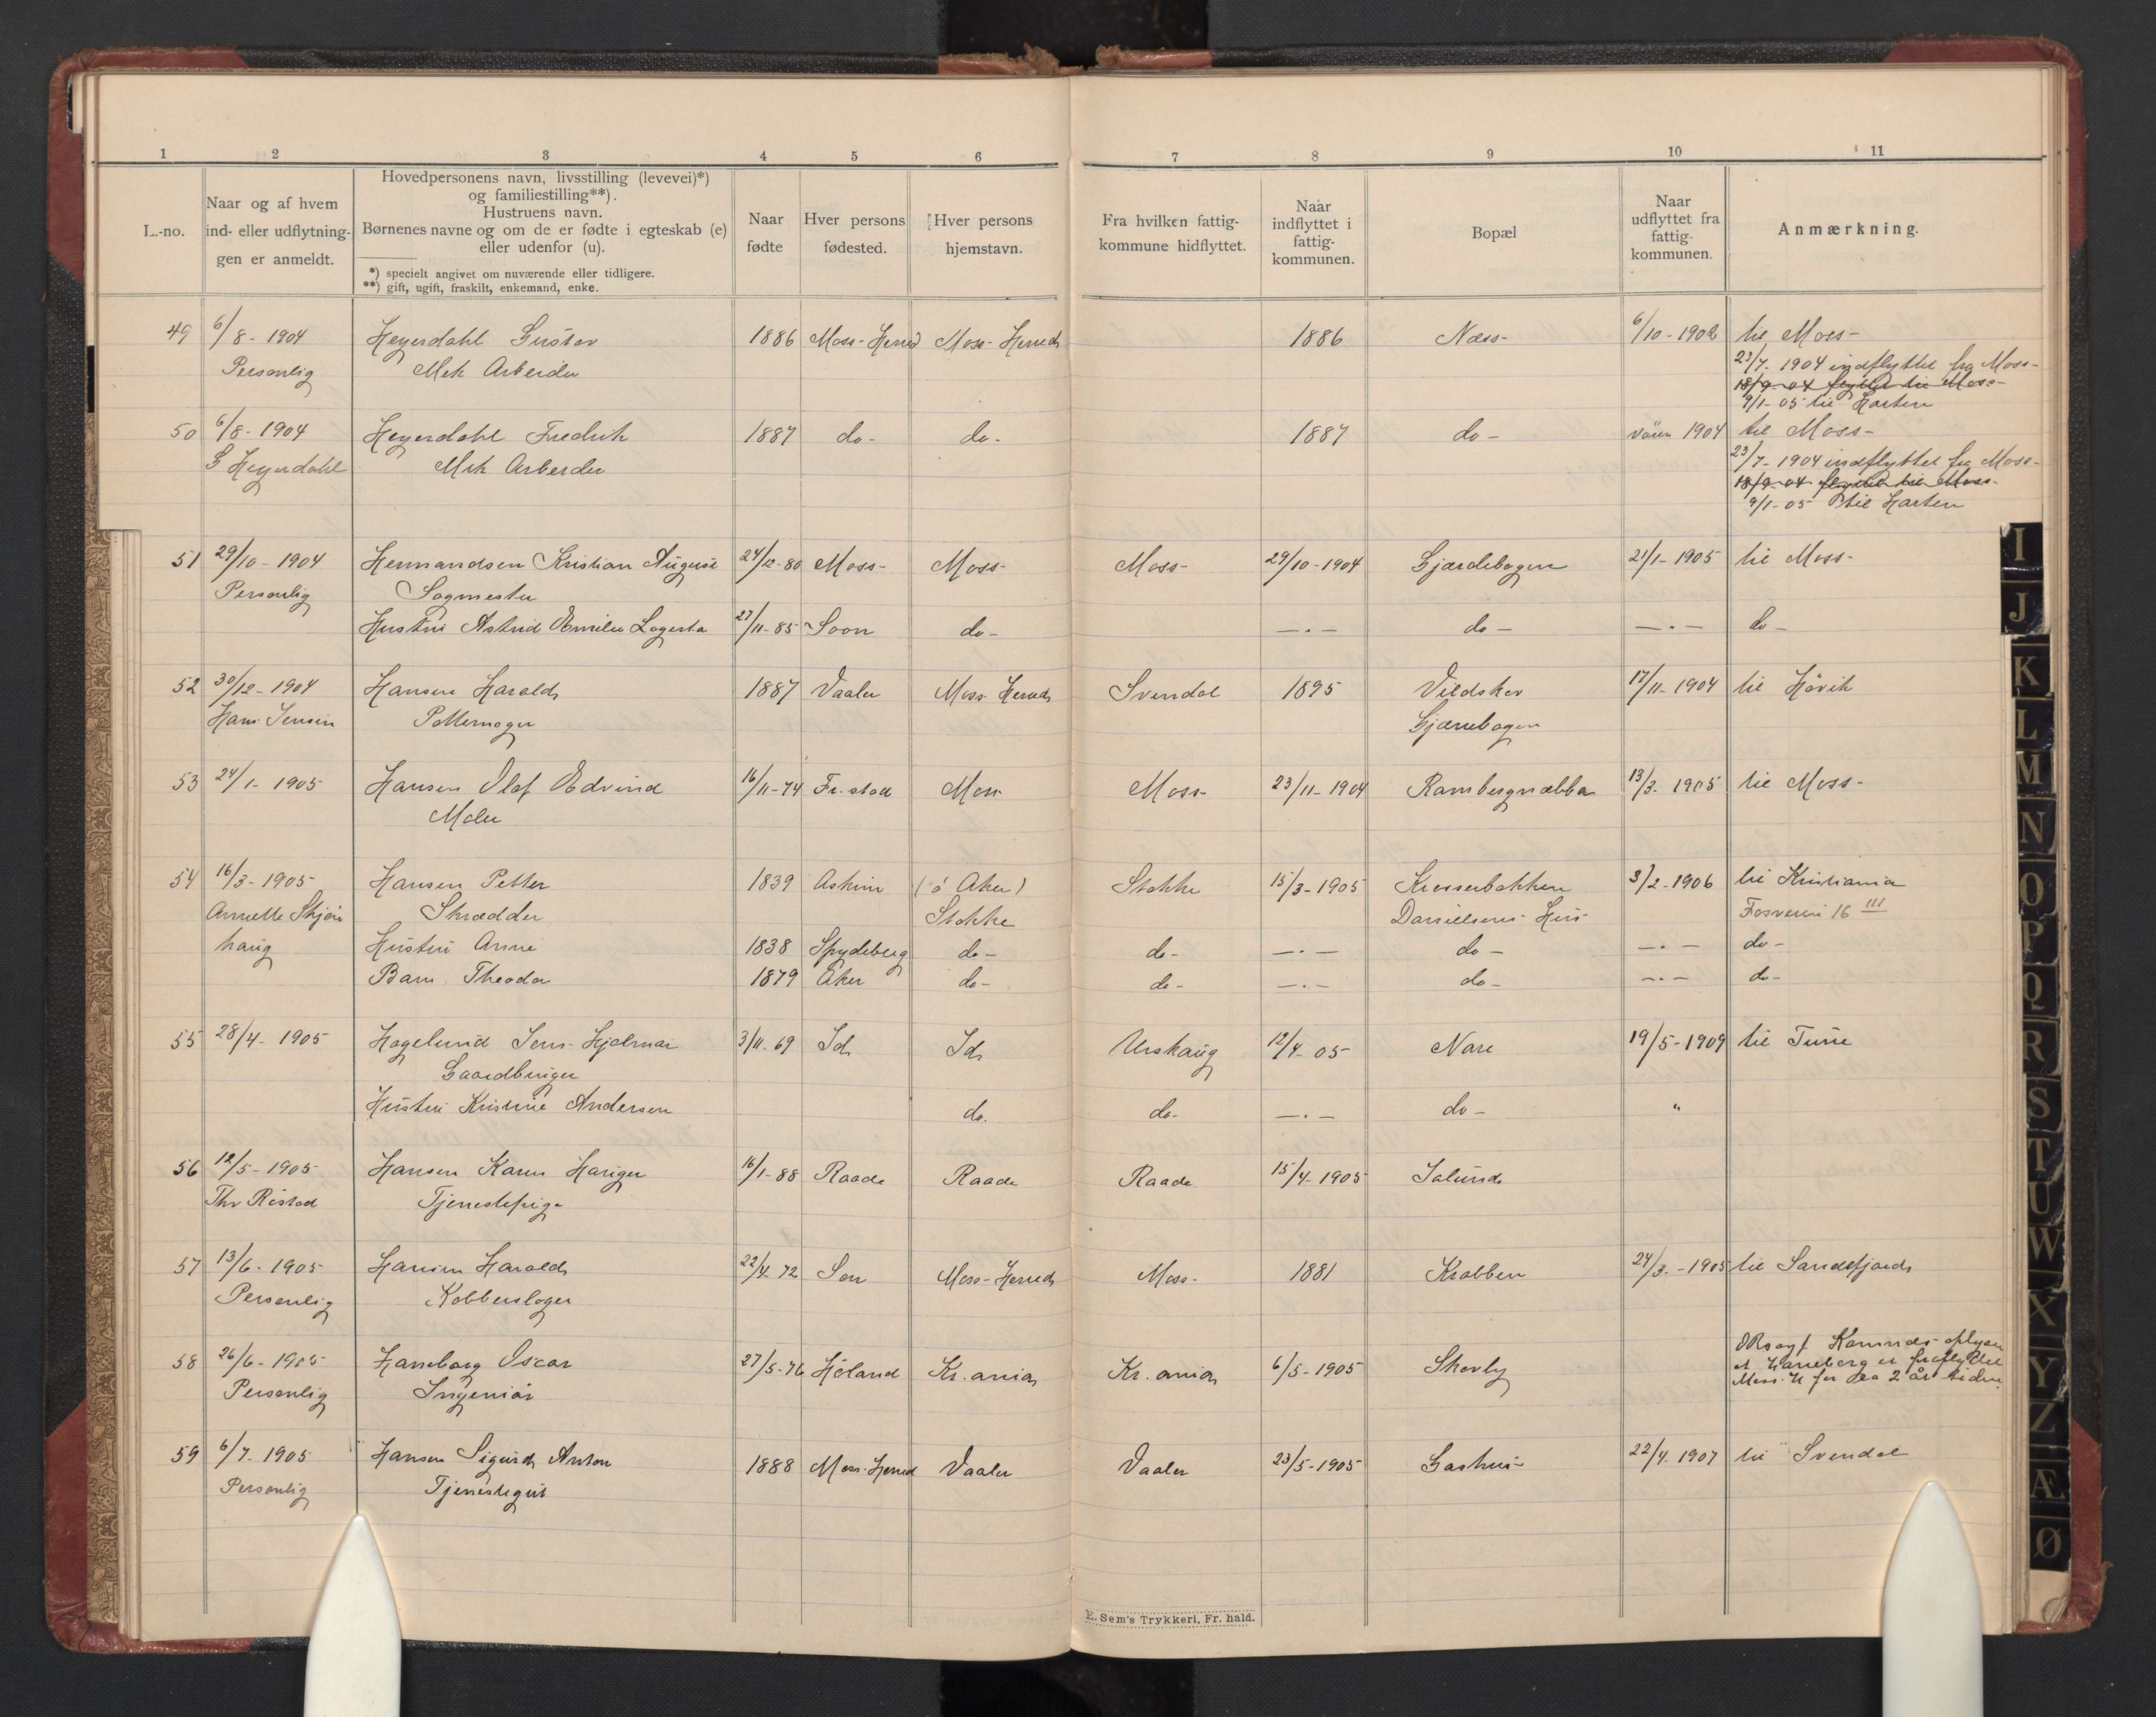 1 2 3 4 5 6 7 8 9 10 11
L.-no.
Naar og af hvem
ind- eller udflytnin-
gen er anmeldt.
Hovedpersonens navn, livsstilling (levevei)*)
og familiestilling**).
Hustruens navn.
Børnenes navne og om de er fødte i egteskab (e)
eller udenfor (u).
*) specielt angivet om nuværende eller tidligere.
**) gift, ugift, fraskilt, enkemand, enke.
Naar
fødte
Hver persons
fødested.
Hver persons
hjemstavn.
Fra hvilken fattig-
kommune hidflyttet.
Naar
indflyttet i
fattig-
kommunen.
Bopæl
Naar
udflyttet fra
fattig-
kommunen.
Anmærkning.
49 6/8- 1904 Heyerdahl Gustav 1886 Moss-Herred Moss-Herred 1886 Næss- 6/10-1902 til Moss-
Personlig Mek Arbeider 23/7- 1904 indflyttet fra Moss-
18/9-04 flyttet til Moss-
9/1-05 til Horten
50 6/8-1904 Heyerdahl Fredrik 1887 do- do- 1887 do- våren 1904 til Moss-
G Heyerdahl Mek Arbeider 23/7-1904 indflyttet fra Moss-
18/9-04 flyttet til Moss-
9/1-05 til Horten
51 29/10-1904 Hermandsen Kristian August 24/12-80 Moss- Moss- Moss- 29/10-1904 Gjærdebogen 21/1-1905 til Moss-
Personlig Sagmester
Hustru Astrid Emilie Logerta 27/11-85 Soon do- —.— do- —.— do-
52 30/12-1904 Hansen Harald 1887 Vaaler Moss Herred Svendal 1895 Vildskov 17/11-1904 til Hövik
Hans Jensen Pottemager Gjærebogen
53 24/1-1905 Hansen Olaf Edvind 16/11-74 Fr.stad Moss Moss- 23/11-1904 Rambergnæbba 13/3-1905 til Moss-
Maler
54 16/3-1905 Hansen Petter 1839 Askim (ö Aker) Stokke 15/3-1905 Kresserbakken 3/2-1906 til Kristiania
Annette Skjön Skrædder Stokke Danielsens Hus- Fosveien 16 III
haug Hustru Anne 1838 Spydeberg do- do- —.— do- —.— do-
Barn Theodor 1879 Aker do- do- —.— do- —.— do-
55 28/4-1905 Hagelund Jens Hjalmar 3/11-69 Id Id Urskaug 12/4-05- Nore 19/5-1909 til Tune
Gaardbruger
Hustru Kristine Andersen do. do- —.— do- "
56 12/5-1905 Hansen Karen 16/1-88 Raade Raade Raade 15/4-1905 Jalund
Thr Ristad Tjenestepige
57 13/6-1905 Hansen Harald 22/4-72 Son Moss-Herred Moss- 1881 Krabben 24/3-1905 til Sandefjord
Personlig Kobberslager
58 26/6-1905 Hareborg Oscar 27/5-76 Höland Kr.ania Kr.ania 6/5-1905 Skovly
Personlig Ingeniör
et Hareberg er fraflyttet
Moss.H for ca 2 år siden.
59 6/7-1905 Hansen Sigurd Anton 1888 Moss-Herred Vaaler Vaaler 23/5-1905- Gashus- 22/4-1907 til Svendal
Personlig Tjenestegut
E. Sem's Trykkeri, Fr. hald.
I
J
K
L
M
N
O
P
Q
R
S
T
U
W
X
Y
Z
Æ
Ø